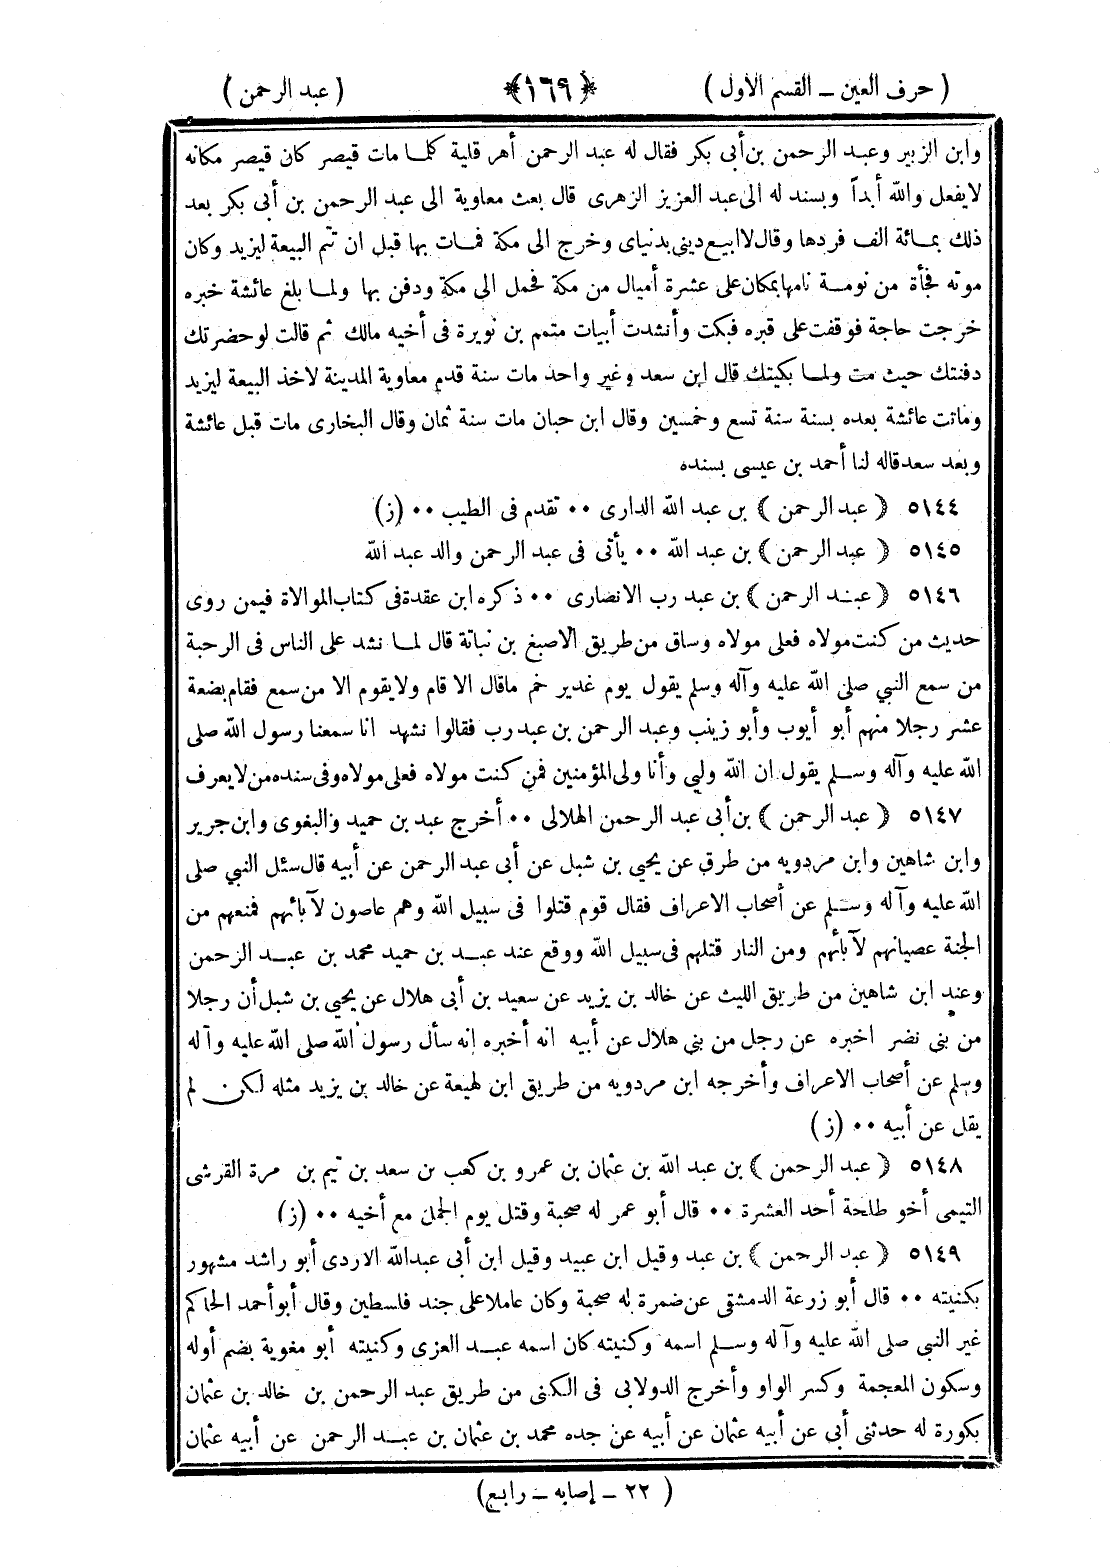 ( حرف العين ــ القسم الاول )
﴿١٦٩﴾
( عبد الرحمن )
وابن الزبير وعبـد الرحمن بن أبى بكر فقال له عبد الرحمن أهر قلية كلمـا مات قيصر كان قيصر مكانه
لايفعل والله أبداً وبسند له الى عبد العزيز الزهرى قال بعث معاوية الى عبد الرحمن بن أبى بكر بعد
ذلك بمـائة الف فردها وقال لا ابيع ديني بدنياى وخرج الى مكة فمـات بها قبل ان تتم البيعة ليزيد وكان
موته فجأة من نومـة نامها بمكان على عشرة أميال من مكة فحمل الى مكة ودفن بها ولمـا بلغ عائشة خبره
خرجت حاجة فوقفت على قبره فبكت وأنشدت أبيات متمم بن نويرة فى أخيه مالك ثم قالت لوحضرتك
دفنتك حيث مت ولمـا بكيتك قال ابن سعد وغير واحد مات سنة قدم معاوية المدينة لاخذ البيعة ليزيد
وماتت عائشة بعده بسنة سنة تسع وخمسين وقال ابن حبان مات سنة ثمان وقال البخارى مات قبل عائشة
وبعد سعد قاله لنا أحمد بن عيسى بسنده
٥١٤٤ ﴿ عبد الرحمن ﴾ بن عبد الله الدارى ٠٠ تقدم فى الطيب ٠٠ (ز)
٥١٤٥ ﴿ عبد الرحمن ﴾ بن عبد الله ٠٠ يأتى فى عبد الرحمن والد عبد الله
٥١٤٦ ﴿ عبـد الرحمن ﴾ بن عبد رب الانصارى ٠٠ ذكره ابن عقدة فى كتاب الموالاة فيمن روى
حديث من كنت مولاه فعلى مولاه وساق من طريق الاصبغ بن نباتة قال لمـا نشد على الناس فى الرحبة
من سمع النبي صلى الله عليه وآله وسلم يقول يوم غدير خم ماقال الا قام ولا يقوم الا من سمع فقام بضعة
عشر رجلا منهم أبو أيوب وأبو زينب وعبد الرحمن بن عبد رب فقالوا نشهد انا سمعنا رسول الله صلى
الله عليه وآله وسـلم يقول ان الله وليي وأنا ولى المؤمنين فمن كنت مولاه فعلى مولاه وفى سنده من لا يعرف
٥١٤٧ ﴿ عبد الرحمن ﴾ بن أبى عبد الرحمن الهلالى ٠٠ أخرج عبد بن حميد والبغوى وابن جرير
وابن شاهين وابن مردويه من طرق عن يحيي بن شبل عن أبى عبد الرحمن عن أبيه قال سئل النبي صلى
الله عليه وآله وسـلم عن أصحاب الاعراف فقال قوم قتلوا فى سبيل الله وهم عاصون لآبائهم فمنعهم من
الجنة عصيانهم لآبائهم ومن النار قتلهم فى سبيل الله ووقع عند عبـد بن حميد محمد بن عبـد الرحمن
وعند ابن شاهين من طريق الليث عن خالد بن يزيد عن سعيد بن أبى هلال عن يحيي بن شبل أن رجلا
من بنى نضر اخبره عن رجل من بنى هلال عن أبيه انه أخبره إنه سأل رسول الله صلى الله عليه وآله
وسلم عن أصحاب الاعراف وأخرجه ابن مردويه من طريق ابن لهيعة عن خالد بن يزيد مثله لكن لم
يقل عن أبيه ٠٠ (ز)
٥١٤٨ ﴿ عبد الرحمن ﴾ بن عبد الله بن عثمان بن عمرو بن كعب بن سعد بن تيم بن مرة القرشى
التيمى أخو طلحة أحد العشرة ٠٠ قال أبو عمر له صحبة وقتل يوم الجمل مع أخيه ٠٠ (ز)
٥١٤٩ ﴿ عبد الرحمن ﴾ بن عبد وقيل ابن عبيد وقيل ابن أبى عبدالله الازدى أبو راشد مشهور
بكنيته ٠٠ قال أبو زرعة الدمشقى عن ضمرة له صحبة وكان عاملا على جند فلسطين وقال أبو أحمد الحاكم
غير النبي صلى الله عليه وآله وسـلم اسمه وكنيته كان اسمه عبـد العزى وكنيته أبو مغوية بضم أوله
وسكون المعجمة وكسر الواو وأخرج الدولابى فى الكنى من طريق عبد الرحمن بن خالد بن عثمان
بكورة له حدثنى أبى عن أبيه عثمان عن أبيه عن جده محمد بن عثمان بن عبـد الرحمن عن أبيه عثمان
( ٢٢ ــ إصابه ــ رابع)